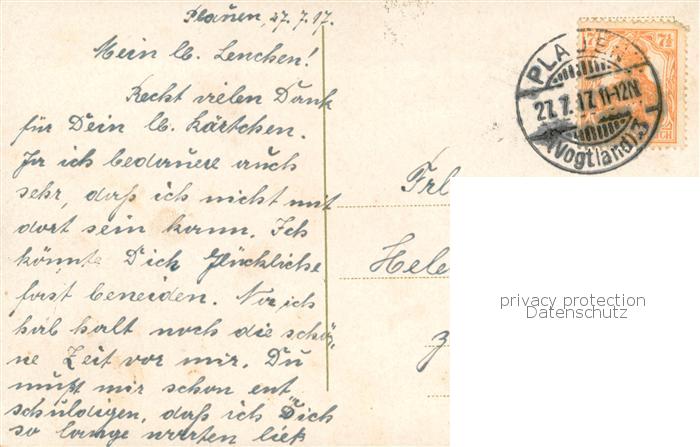 Plauen, 27.7.17.
Mein lb. Lenchen!
Recht vielen Dank
für Dein lb. Kärtchen.
Ja ich bedauere auch
sehr, daß ich nicht mit
dort sein kann. Ich
könnte Dich Glückliche
fast beneiden. Na ich
hab halt noch die schö-
ne Zeit vor mir. Du
mußt mir schon ent-
schuldigen, daß ich Dich
so lange warten ließ
PLAUEN
27.7.17.11-12N
(Vogtland)
7½
Frl
Hele
z
privacy protection
Datenschutz